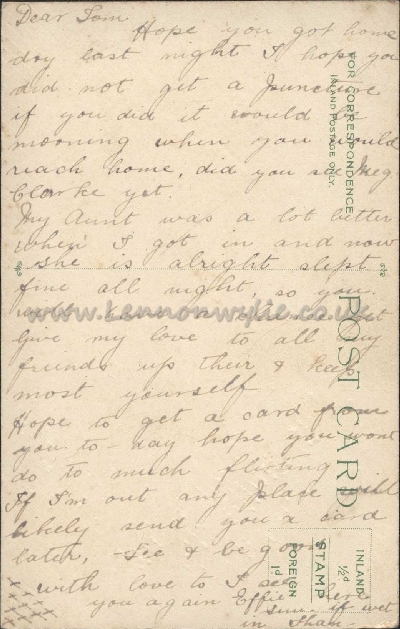 Dear Tom
Hope you got home
dry last night I hope you
did not get a puncture
if you did it would be
moorning when you would
reach home, did you see Meg
Clarke yet.
My Aunt was a lot better
when I got in and now
she is alright slept
fine all night, so you
will
Give my love to all my
friends up their & keep
most yourself
Hope to get a card from
you to-day hope you wont
do to much flirting
If I'm out any place will
likely send you a card
latch, & be good
with love to I see
you again Effie
sun- if wet
in
FOR CORRESPONDENCE
INLAND POSTAGE ONLY.
POST CARD
INLAND
½d
STAMP
FOREIGN
1d
www.Lennonwylie.co.uk